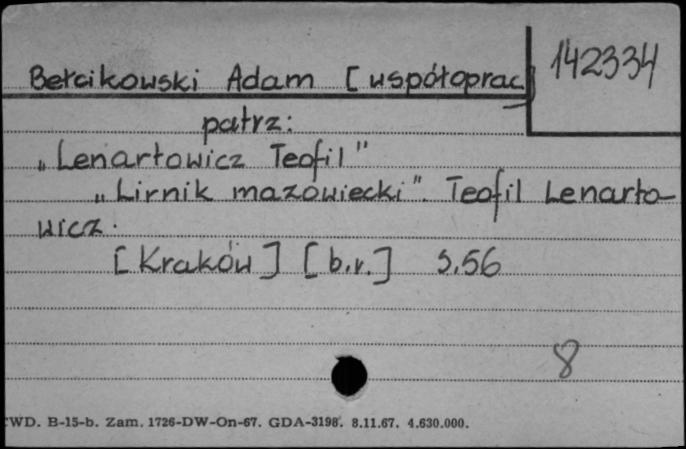 142334
Bełcikowski Adam [współoprac]
patrz:
„Lenartowicz Teofil"
„Lirnik mazowiecki". Teofil Lenarto-
wicz.
[Kraków] [b.r.] S.56
8
WD. B-15-b. Zam. 1726-DW-On-67. GDA-3198. 8.11.67. 4.630.000.